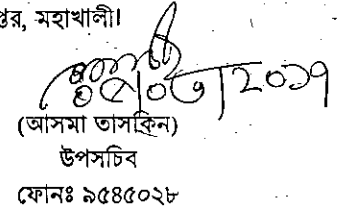 প্তর, মহাখালী।
২০১৭
(আসমা তাসকিন)
উপসচিব
ফোনঃ ৯৫৪৫০২৮